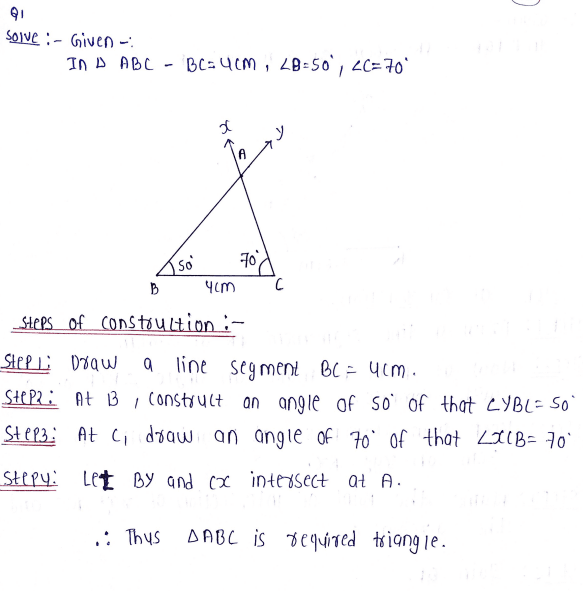 Q1
Solve :- Given -:
In Δ ABC - BC = 4cm, ∠B = 50°, ∠C = 70°
x
y
A
50°
70°
B
4cm
C
Steps of construction :-
Step1: Draw a line segment BC = 4cm.
Step2: At B, construct an angle of 50° of that ∠YBC = 50°
Step3: At C, draw an angle of 70° of that ∠XCB = 70°
Step4: Let BY and CX intersect at A.
∴ Thus ΔABC is required triangle.